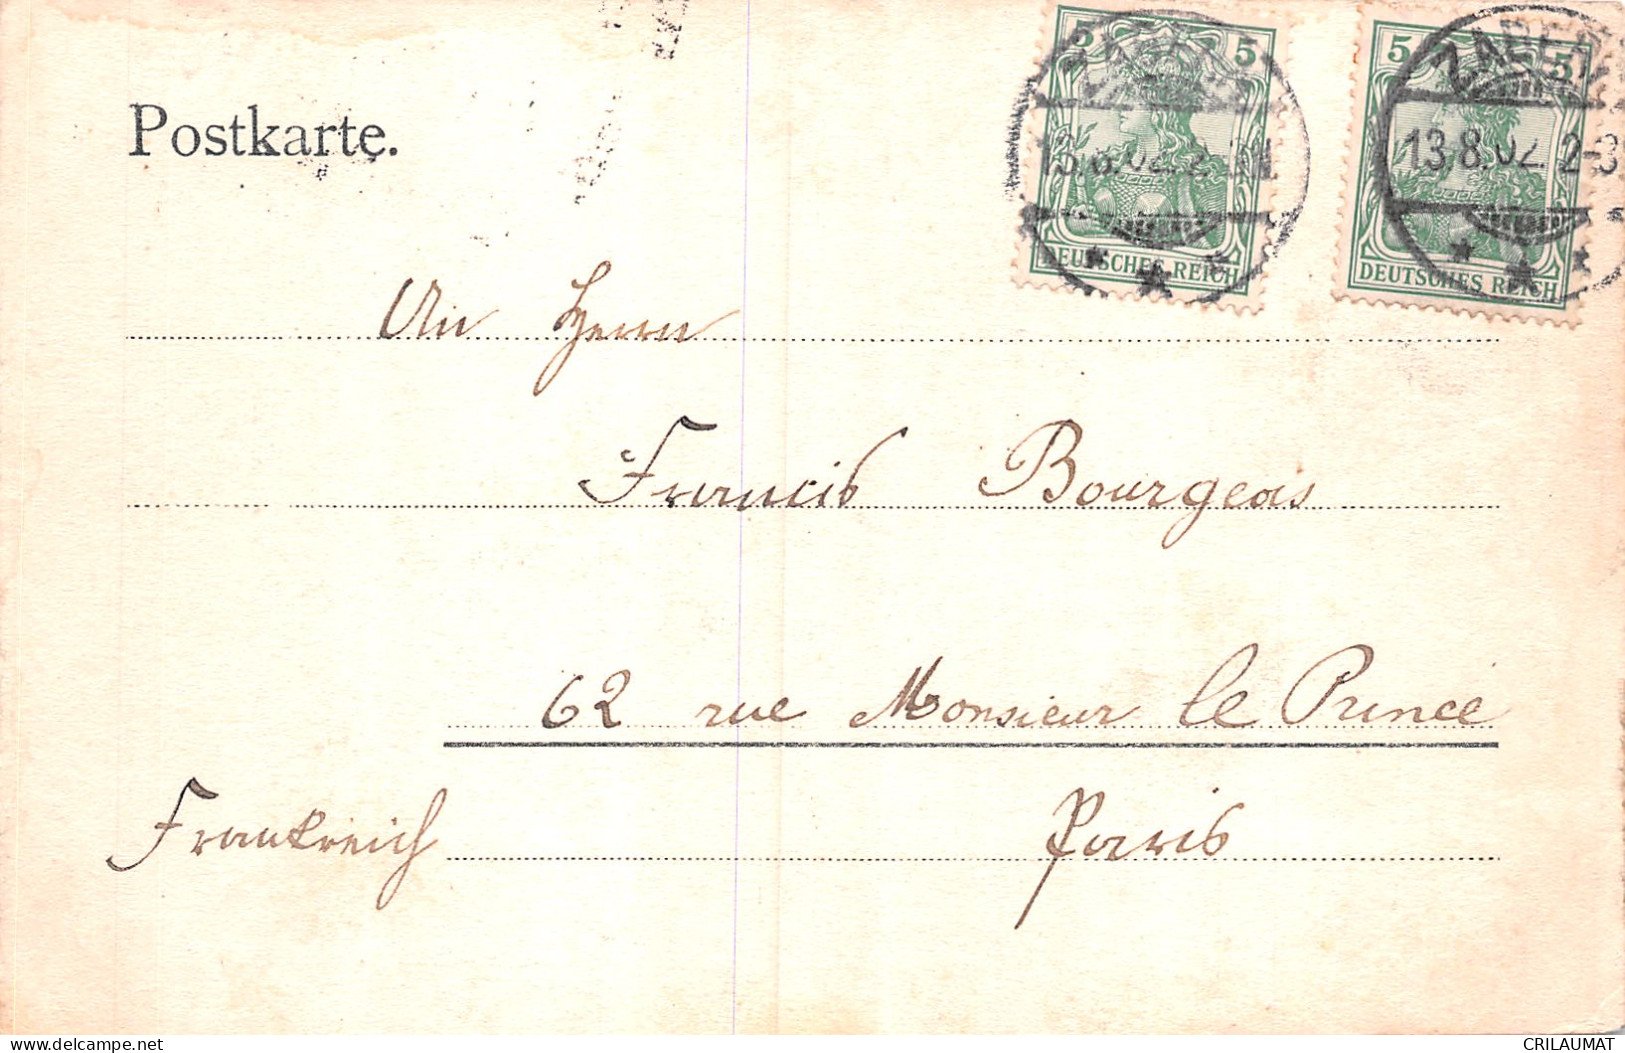 5 5
13.8.02. 2-3
DEUTSCHES REICH
5 5
13.8.02. 2-3
DEUTSCHES REICH
Postkarte.
An Herrn
Francis Bourgeois
62 rue Monsieur le Prince
Frankreich Paris
CRILAUMAT